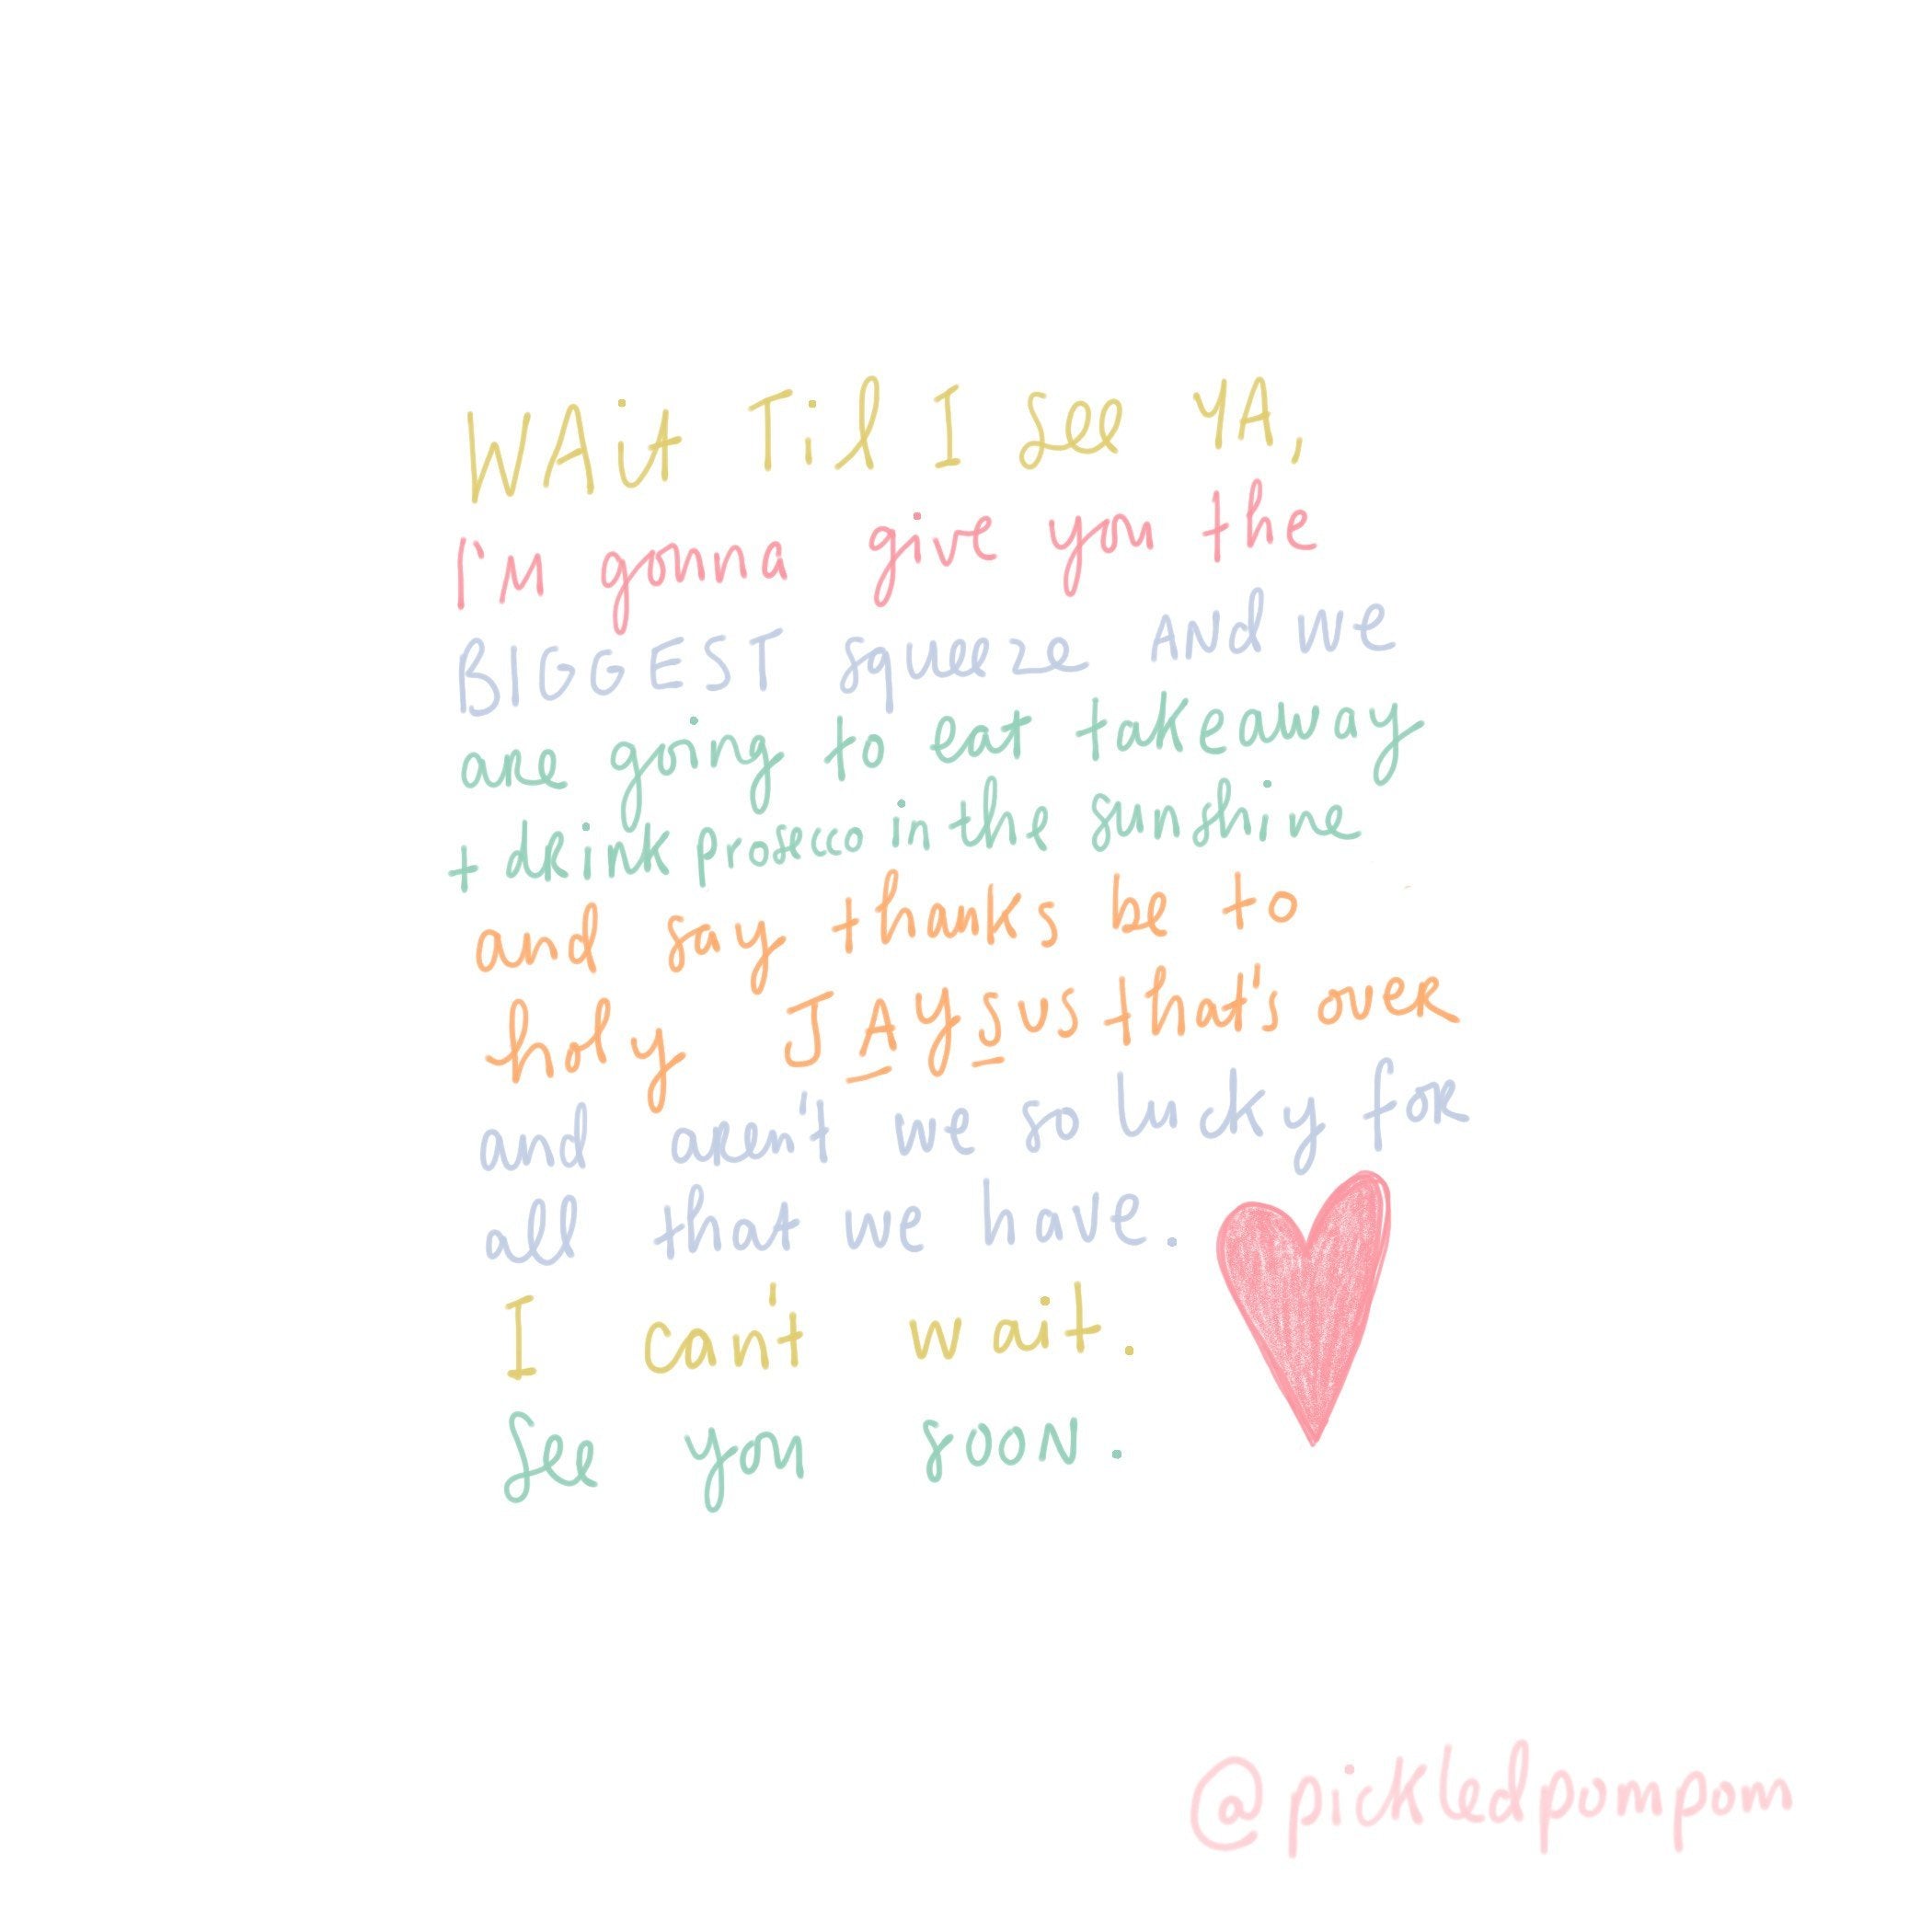 WAit Til I see YA,
I'm gonna give you the
BIGGEST squeeze ANd we
are going to eat takeaway
+ drink prosecco in the sunshine
and say thanks be to
holy JAYSUS that's over
and aren't we so lucky for
all that we have.
I can't wait.
See you soon.
@pickledpompom